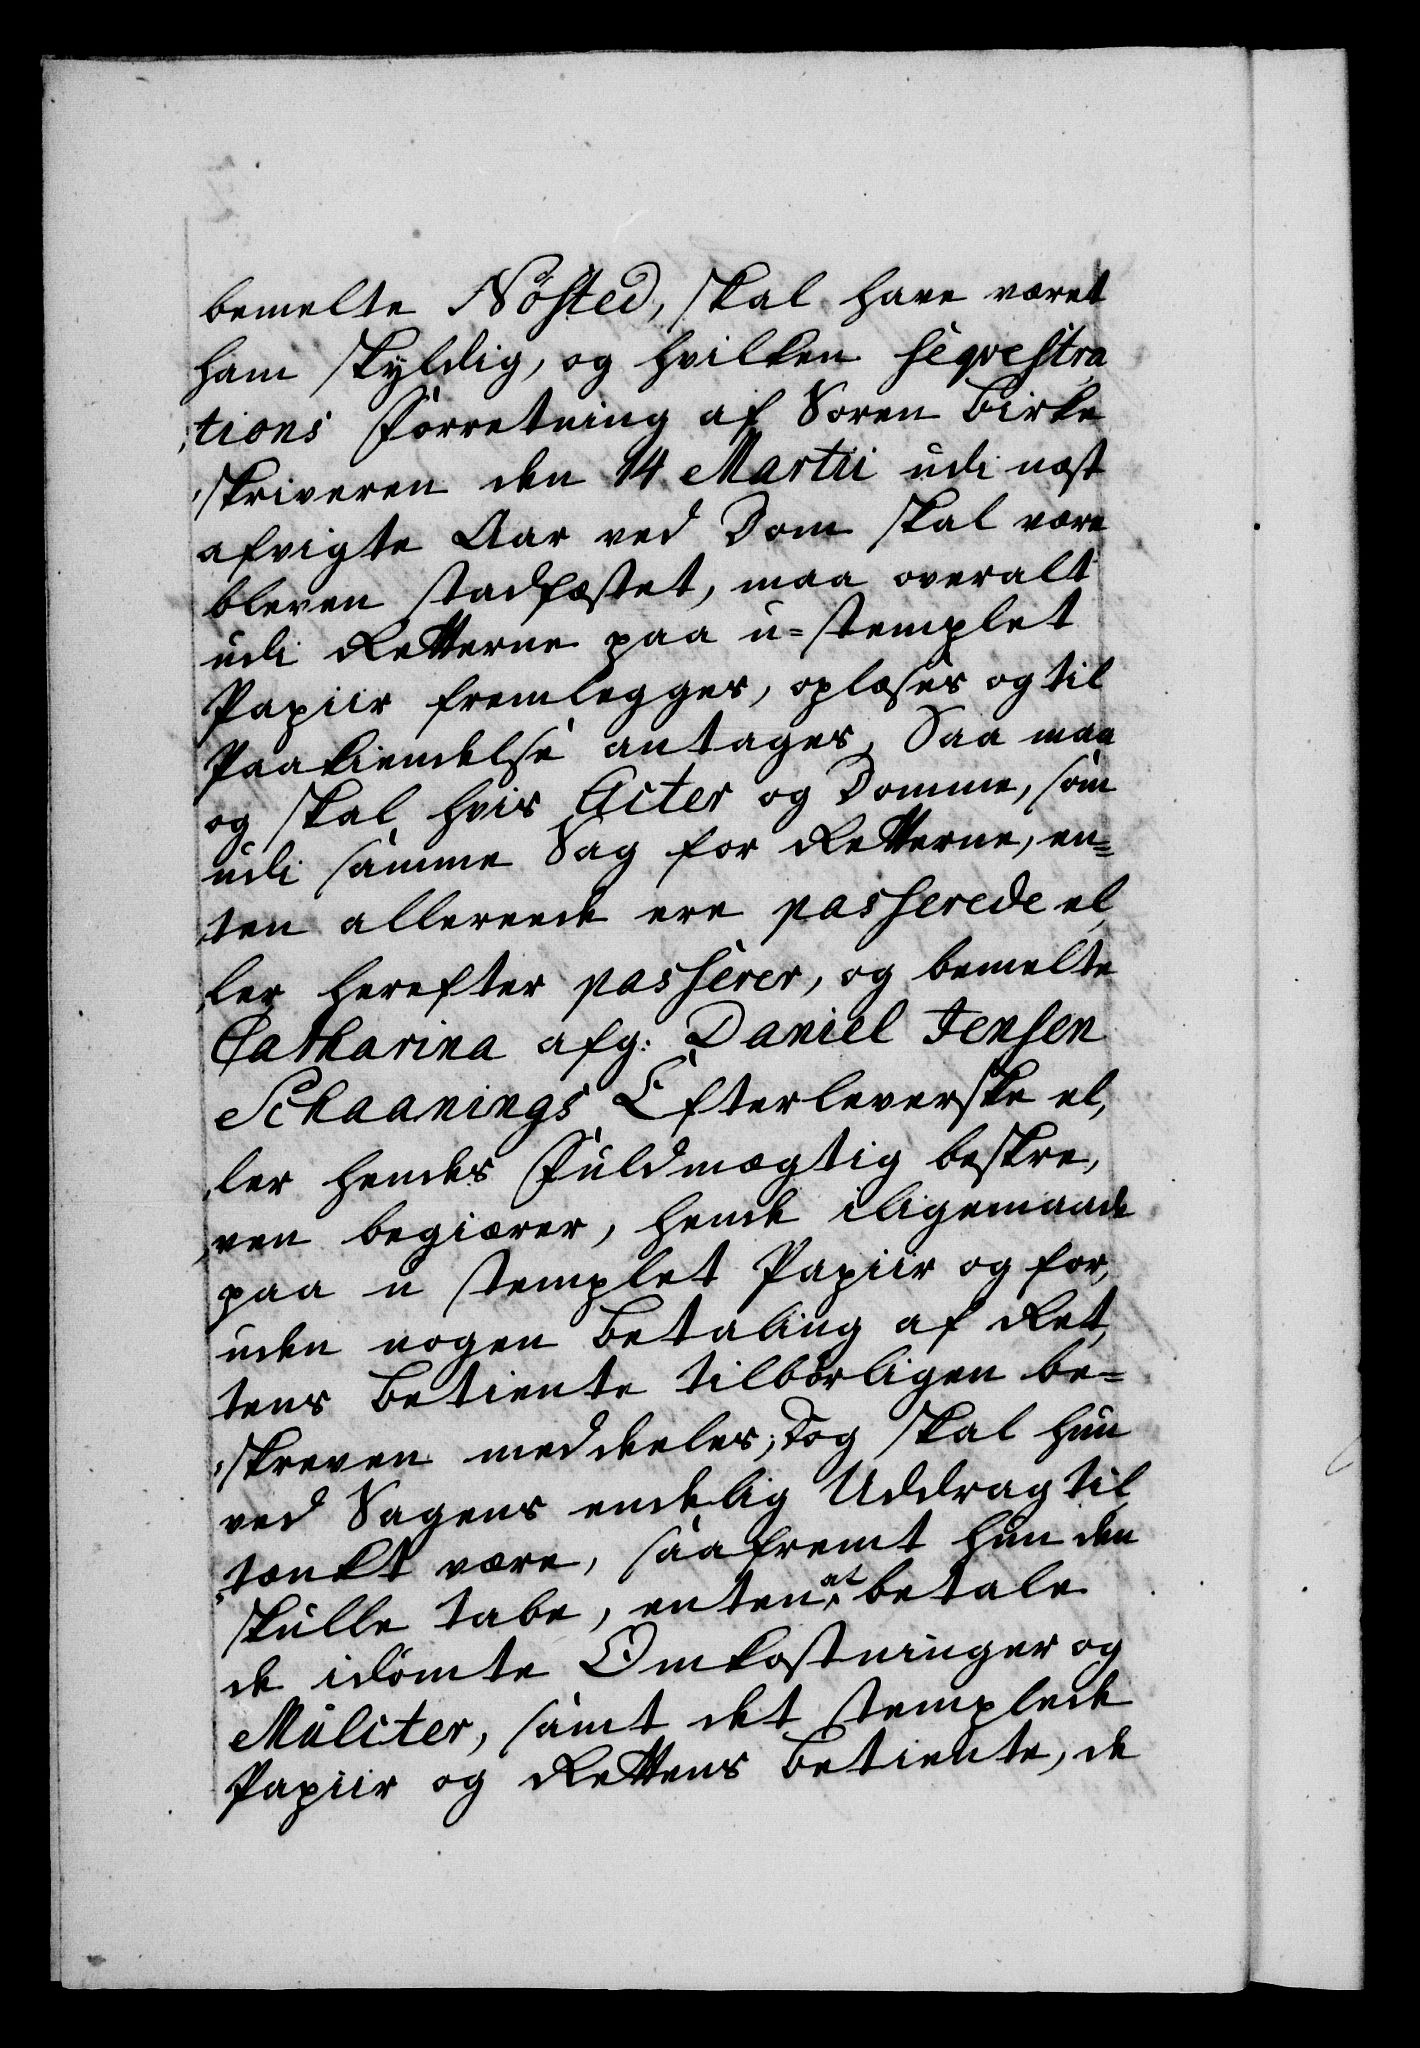 bemelte Nösted, skal have været
ham skyldig, og hvilken seqvestra
,tions Forretning af Soren Birke
,skriveren den 14 Martii udi næst
afvigte Aar ved Dom skal være
bleven stadfæstet, maa overalt
udi Retterne paa u=stemplet
Papiir fremlegges, oplæses og til
Paakiendelse antages, Saa maa
og skal hvis Acter og Domme, som
udi samme Sag for Retterne, en=
ten allereede ere passerede el,
ler herefter passerer, og bemelte
Catharina afg: Daniel Jensen
Schaanings Efterleverske el,
,ler hendes Fuldmægtig beskre,
,ven begiærer, hende iligemaade
paa u stemplet Papiir og for,
uden nogen Betaling af Ret,
tens Betiente tilbörligen be=
,skreven meddeeles; Dog skal hun
ved Sagens endelig Uddrag til,
,tænkt være, saafremt hun den
skulle tabe, enten at betale
de idömte Omkostninger og
Mulcter, samt det stemplede
Papiir og Rettens Betiente, de